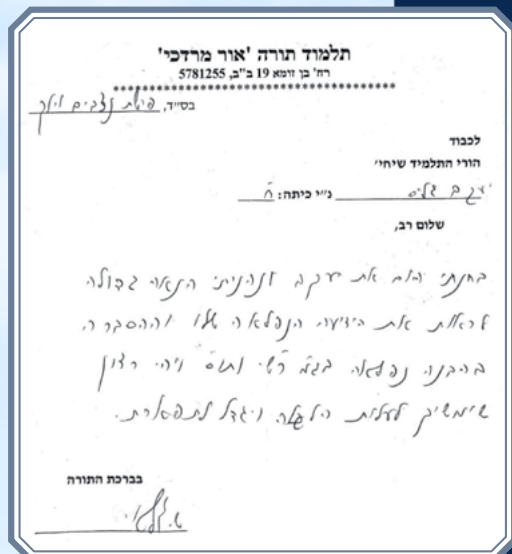 תלמוד תורה 'אור מרדכי'
רח' בן זומא 19 ב"ב, 5781255
בסי"ד, פרשת נצבים וילך
לכבוד
הורי התלמיד שיחי'
יעקב נ"י כיתה: ח'
שלום רב,
בחנתי היום את יעקב ונהניתי הנאה גדולה
לראות את הידיעה הנפלאה שלו וההסברה
בהבנה נפלאה בגמ' רש"י ותוס' ויהי רצון
שימשיך לעלות הלאה ויגדל לתפארת.
בברכת התורה